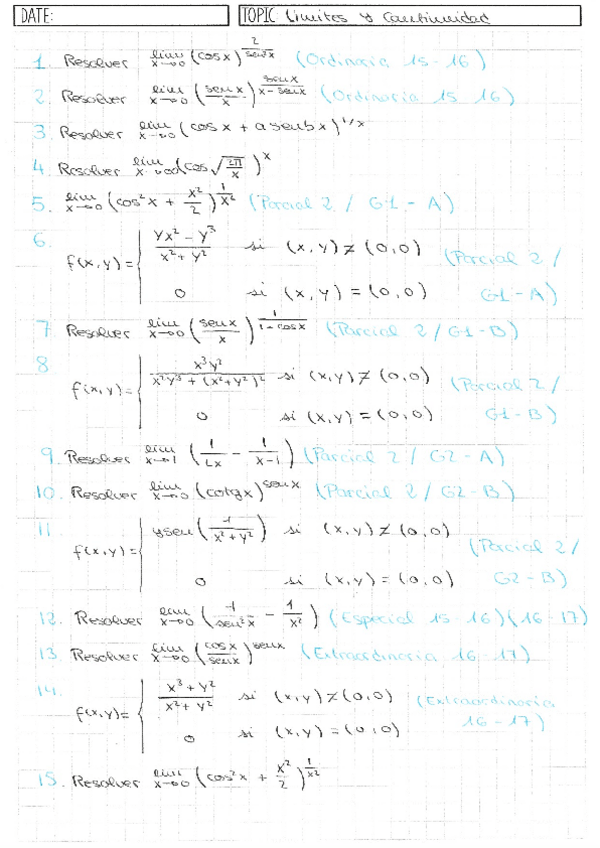 DATE: TOPIC Limites y Continuidad
1. Resolver lim x→0 (cosx)^(2/sen²x) (Ordinaria 15-16)
2. Resolver lim x→0 (senx/x)^(senx/(x-senx)) (Ordinaria 15 16)
3. Resolver lim x→0 (cosx + a senbx)^(1/x)
4. Resolver lim x→∞ (cos √(2π/x))^x
5. lim x→0 (cos²x + x²/2)^(1/x²) (Parcial 2 / G1-A)
6. f(x,y) = { (yx² - y³)/(x² + y²) si (x,y) ≠ (0,0) (Parcial 2 /
0 si (x,y) = (0,0) G1-A)
7 Resolver lim x→0 (senx/x)^(1/(1-cosx)) (Parcial 2 / G1-B)
8 f(x,y) = { x³y²/(x²y³ + (x²+y²)²) si (x,y) ≠ (0,0) (Parcial 2 /
0 si (x,y) = (0,0) G1-B)
9. Resolver lim x→1 (1/Lx - 1/(x-1)) (Parcial 2 / G2-A)
10. Resolver lim x→0 (cotgx)^senx (Parcial 2 / G2-B)
11. f(x,y) = { ysen(1/(x²+y²)) si (x,y) ≠ (0,0) (Parcial 2 /
0 si (x,y) = (0,0) G2-B)
12. Resolver lim x→0 (1/sen²x - 1/x²) (Especial 15-16)(16-17)
13. Resolver lim x→0 (cosx/senx)^senx (Extraordinaria 16-17)
14. f(x,y) = { (x³ + y²)/(x² + y²) si (x,y) ≠ (0,0) (Extraordinaria
0 si (x,y) = (0,0) 16-17)
15. Resolver lim x→0 (cos²x + x²/2)^(1/x²)